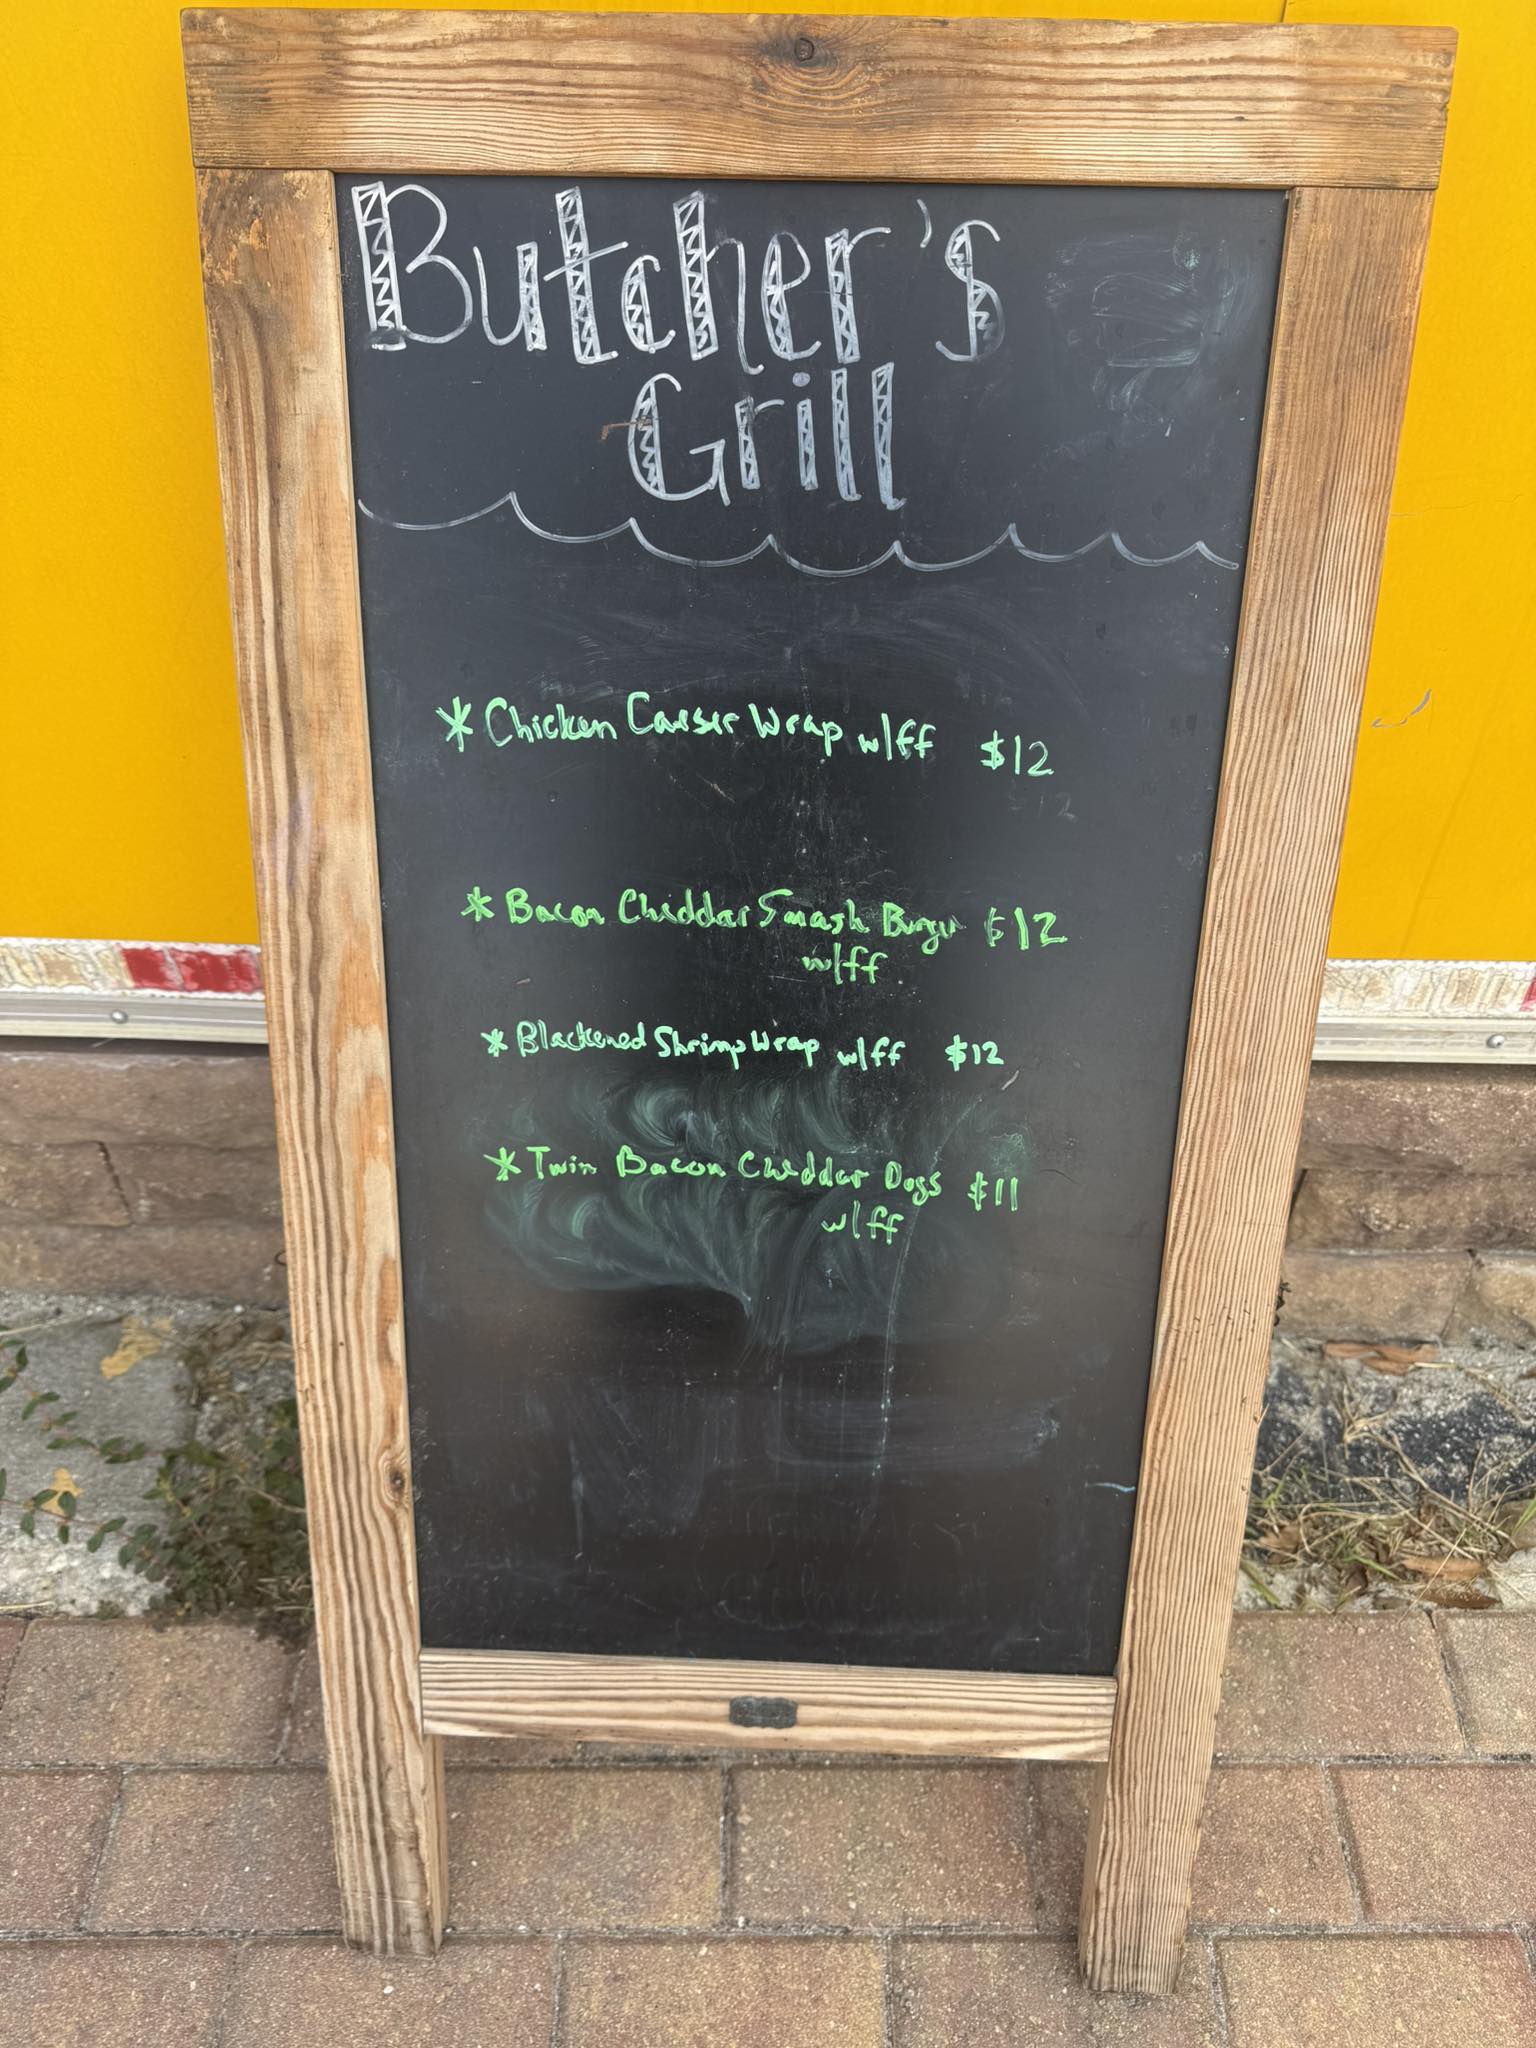 Butcher's
Grill
* Chicken Caeser Wrap w/ff $12
* Bacon Cheddar Smash Burger $12
w/ff
* Blackened Shrimp Wrap w/ff $12
* Twin Bacon Cheddar Dogs $11
w/ff